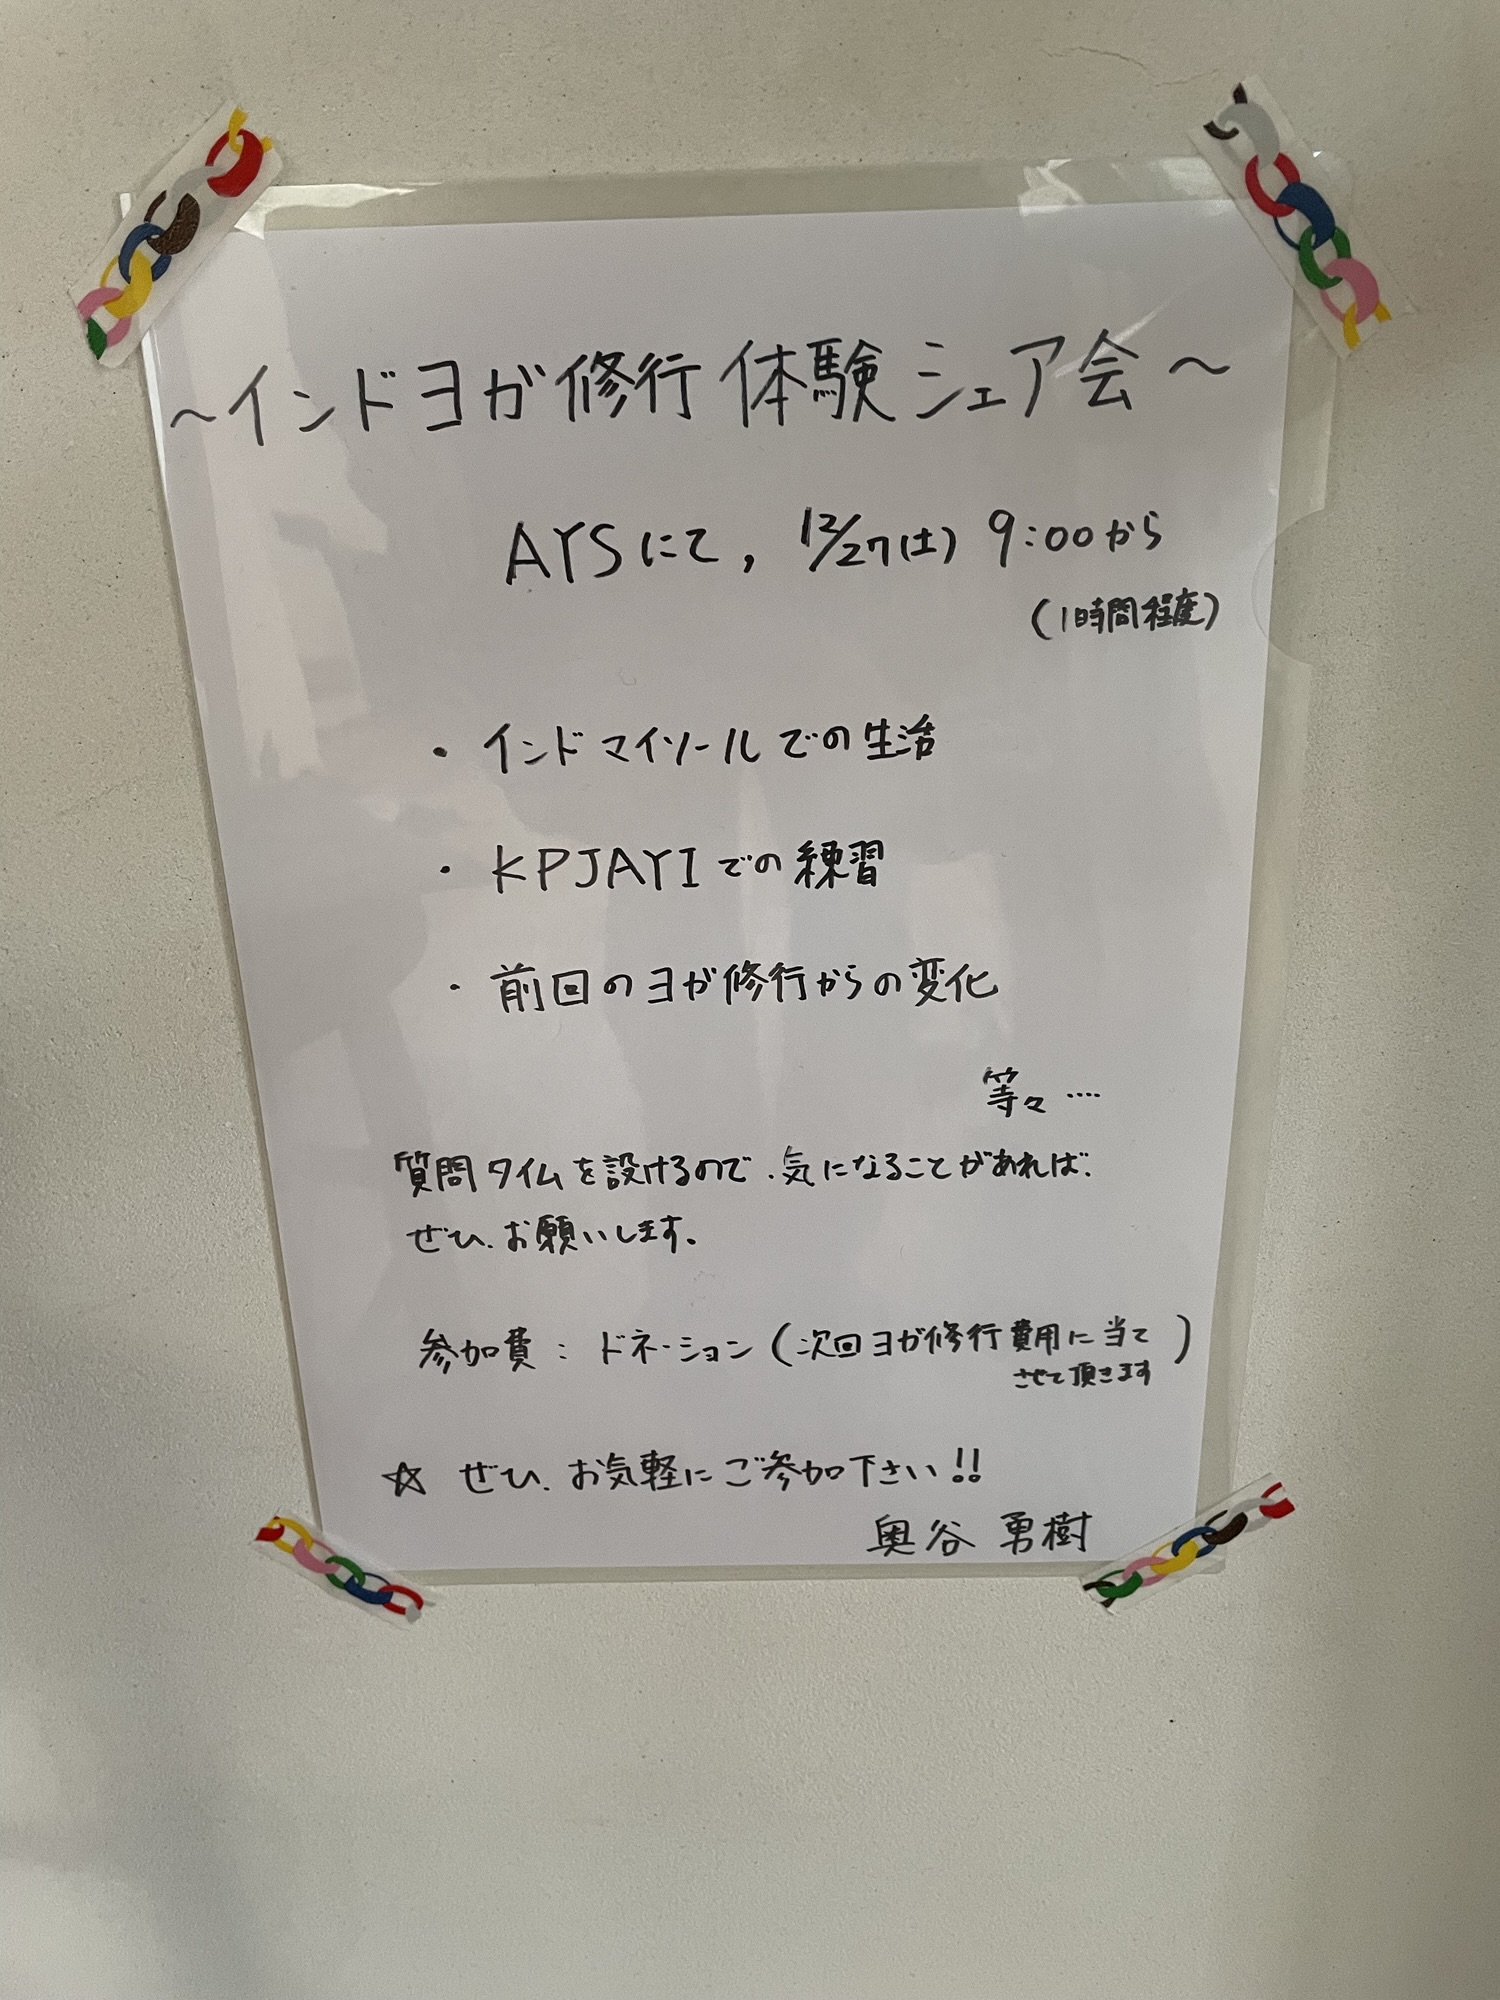 ～インドヨガ修行 体験シェア会～
AYSにて, 12/27(土) 9:00から
(1時間程度)
・インドマイソールでの生活
・KPJAYIでの練習
・前回のヨガ修行からの変化
等々‥‥
質問タイムを設けるので、気になることがあれば、
ぜひ、お願いします。
参加費：ドネーション(次回ヨガ修行費用に当て
させて頂きます)
☆ ぜひ、お気軽にご参加下さい!!
奥谷 勇樹